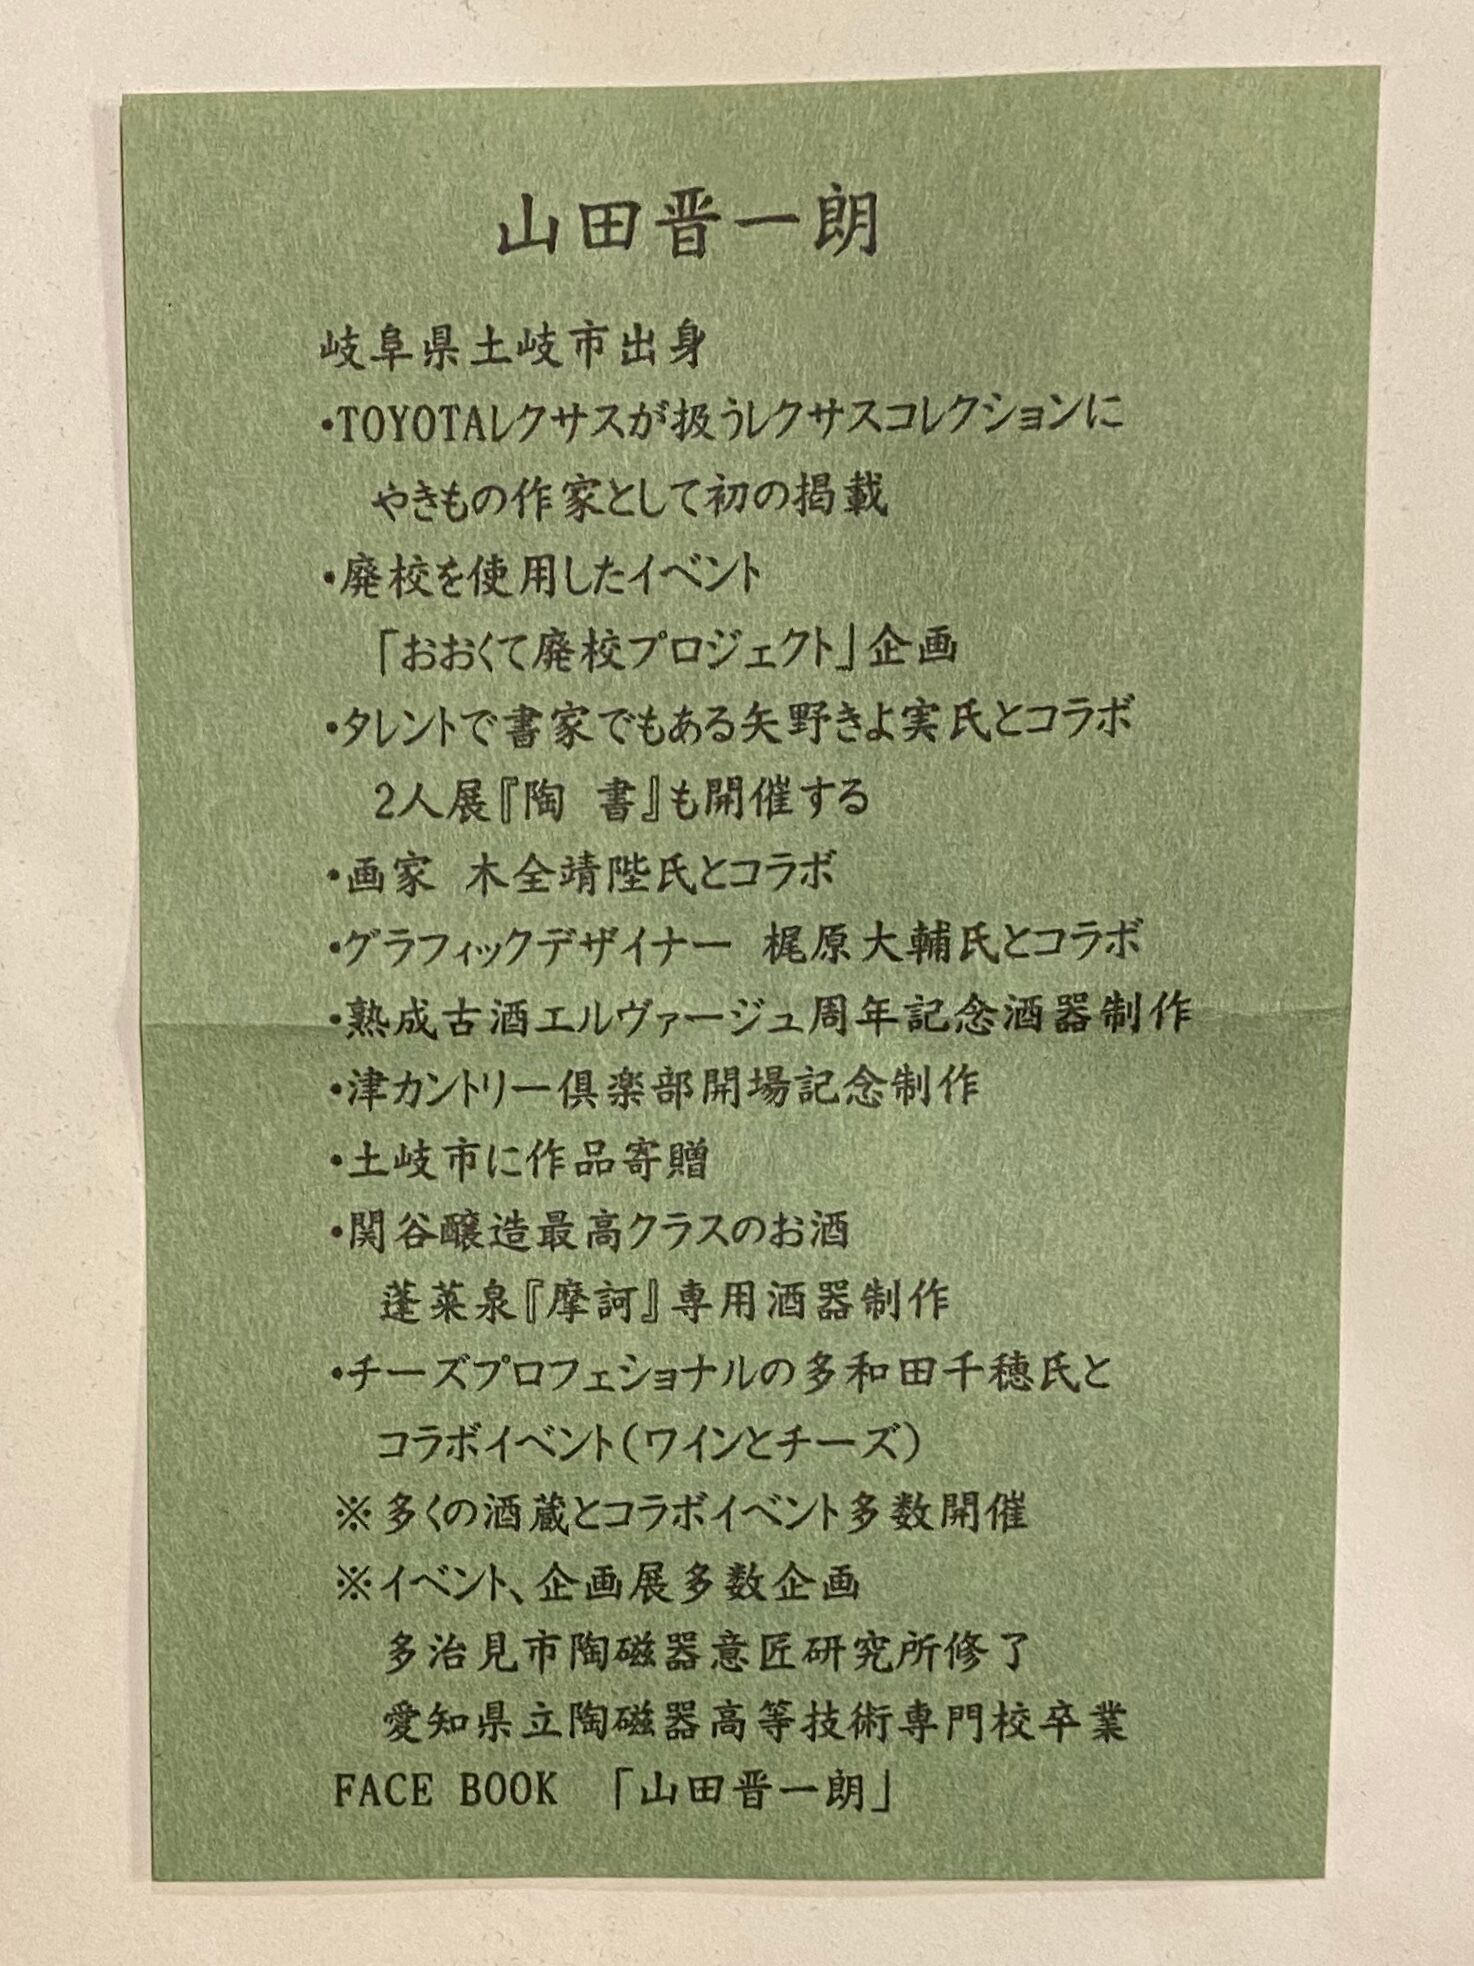 山田晋一朗
岐阜県土岐市出身
・TOYOTAレクサスが扱うレクサスコレクションに
やきもの作家として初の掲載
・廃校を使用したイベント
「おおくて廃校プロジェクト」企画
・タレントで書家でもある矢野きよ実氏とコラボ
2人展『陶 書』も開催する
・画家 木全靖陛氏とコラボ
・グラフィックデザイナー 梶原大輔氏とコラボ
・熟成古酒エルヴァージュ周年記念酒器制作
・津カントリー倶楽部開場記念制作
・土岐市に作品寄贈
・関谷醸造最高クラスのお酒
蓬莱泉『摩訶』専用酒器制作
・チーズプロフェショナルの多和田千穂氏と
コラボイベント(ワインとチーズ)
※多くの酒蔵とコラボイベント多数開催
※イベント、企画展多数企画
多治見市陶磁器意匠研究所修了
愛知県立陶磁器高等技術専門校卒業
FACE BOOK 「山田晋一朗」